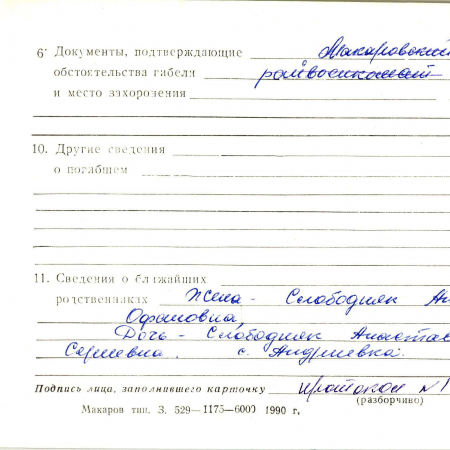 6. Документы, подтверждающие Макаровский
обстоятельства гибели райвоенкомат
и место захоронения
10. Другие сведения
о погибшем
11. Сведения о ближайших
родственниках Жена - Слободняк Ан
Офановна,
Дочь - Слободняк Анастас
Сергеевна. с. Андреевка.
Подпись лица, заполнившего карточку протокол №1
(разборчиво)
Макаров тип. З. 529—1175—6000 1990 г,